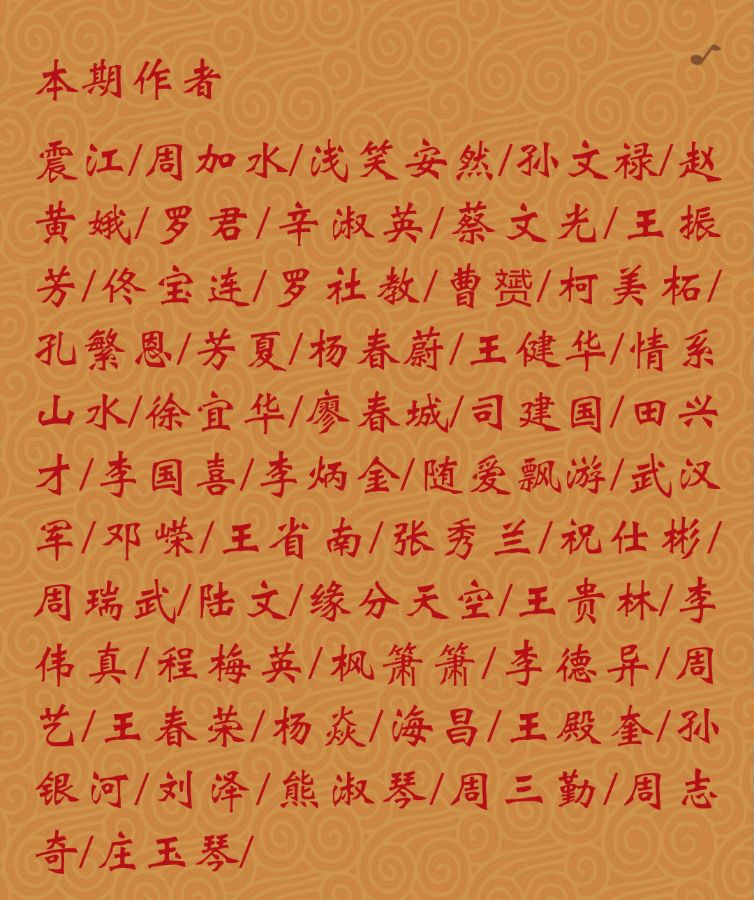 本期作者
震江/周加水/浅笑安然/孙文禄/赵
黄娥/罗君/辛淑英/蔡文光/王振
芳/佟宝连/罗社教/曹赟/柯美柘/
孔繁恩/芳夏/杨春蔚/王健华/情系
山水/徐宜华/廖春城/司建国/田兴
才/李国喜/李炳金/随爱飘游/武汉
军/邓嵘/王省南/张秀兰/祝仕彬/
周瑞武/陆文/缘分天空/王贵林/李
伟真/程梅英/枫箫箫/李德异/周
艺/王春荣/杨焱/海昌/王殿奎/孙
银河/刘泽/熊淑琴/周三勤/周志
奇/庄玉琴/